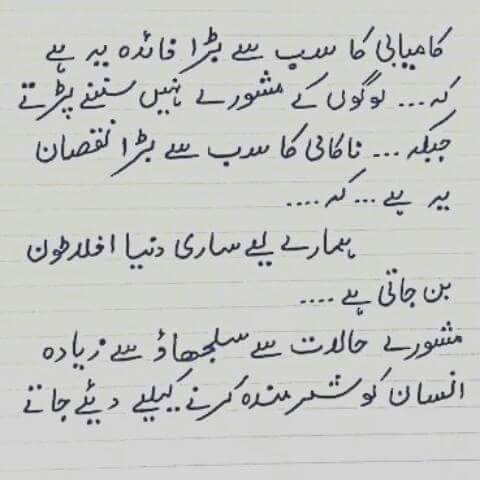 کامیابی کا سب سے بڑا فائدہ یہ ہے
کہ... لوگوں کے مشورے نہیں سننے پڑتے
جبکہ ... ناکامی کا سب سے بڑا نقصان
یہ ہے ... کہ ....
ہمارے لیے ساری دنیا افلاطون
بن جاتی ہے ....
مشورے حالات سے سلجھاؤ سے زیادہ
انسان کو شرمندہ کرنے کیلیے دیئے جاتے